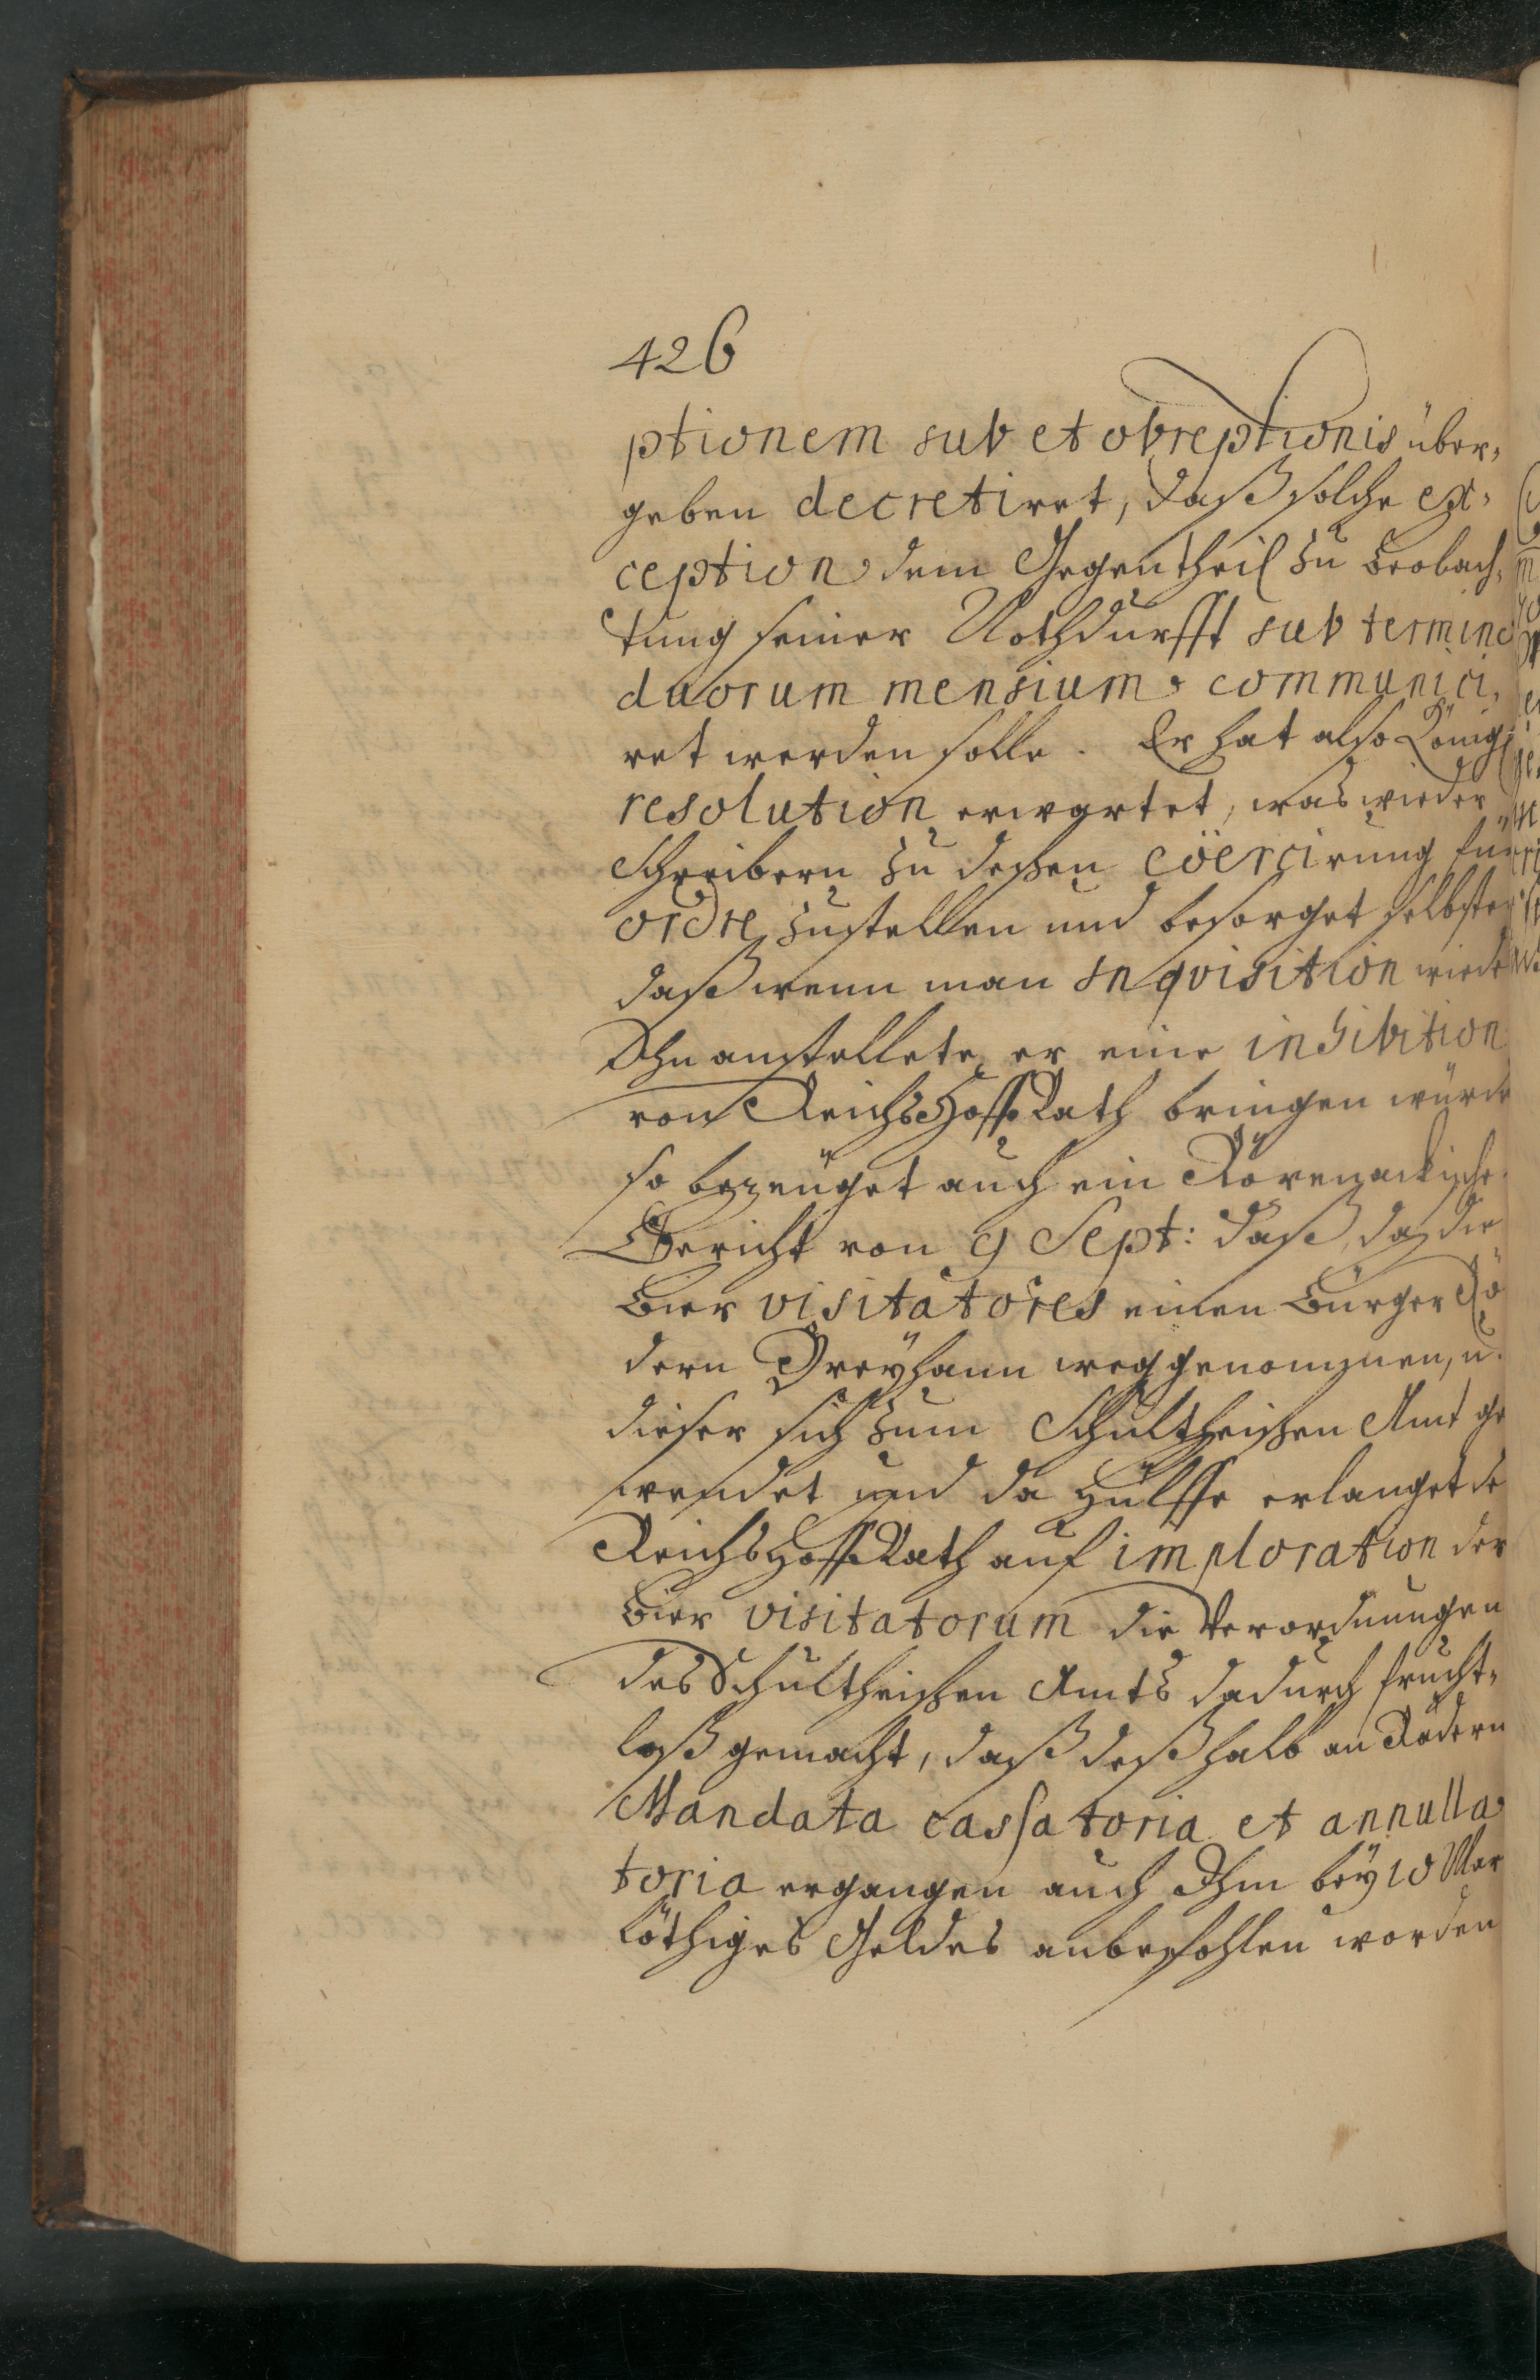 426
ptionem sub et obreptionis über,
geben decretiret, daß solche ex,
ception dem Gegentheil zu beobach,
tung seiner Nothdurfft sub termino
duorum mensium communici,
ret werden solle. Er hat also Königl
resolution erwartet, was wieder
Schreibern zu deßen cöercirung für
ordre zustellen und besorget selbsten
daß wenn man Inquisition wieder
Ihn anstellete er eine inhibition
von Reichs Hoff Rath bringen würde
so bezeuget auch ein
Bericht von 9 Sept: daß, da die
Bier visitatores einen Bürger
dern Dreyhann weggenommen, u.
dieser sich zum Schultheißen Amt ge
wendet und da Hülffe erlanget de
Reichs Hoff Rath auf imploration der
Bier visitatorum die Verordnungen
des Schultheißen Amts dadurch frucht,
loß gemacht, daß deßhalb an Rödern
Mandata cassatoria et annulla
toria ergangen auch Ihm bey 10 Mar
löthiges Geldes anbefohlen worden